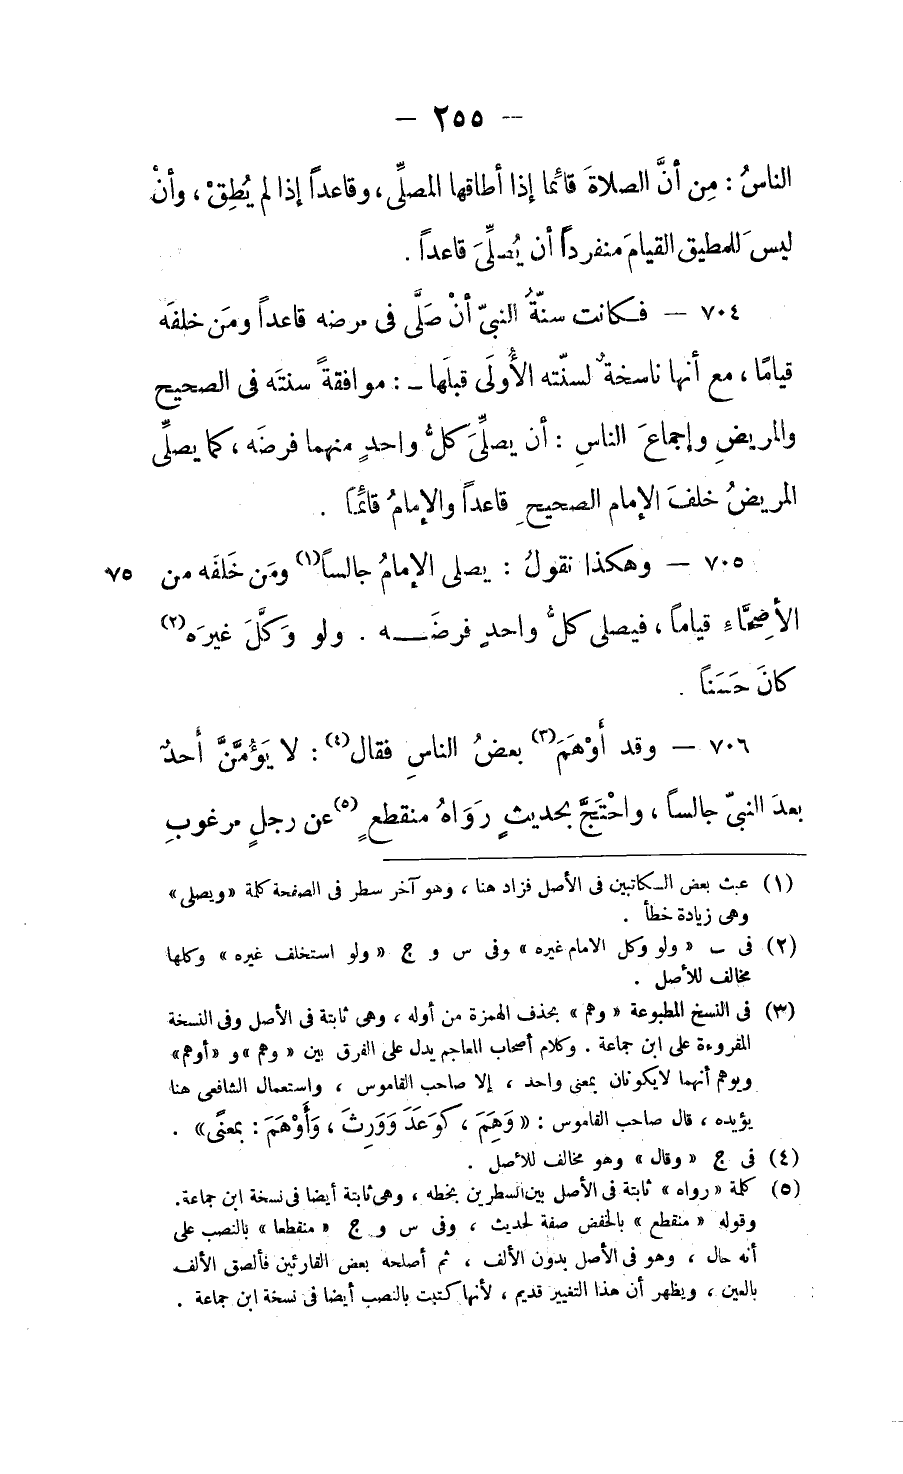 — ٢٥٥ —
الناسُ : مِن أنَّ الصلاةَ قائمًا إذا أطاقها المصلِّى ، وقاعداً إذا لم يُطِقْ ، وأنْ
ليسَ للمطيق القيامَ منفرداً أن يُصلِّىَ قاعداً .
٧٠٤ — فكانت سنّةُ النبىّ أنْ صَلَّى فى مرضه قاعداً ومَن خلفَه
قيامًا ، مع أنها ناسخةٌ لسنّته الأُولَى قبلَها - : موافقةً سنتَه فى الصحيح
والمريضِ وإجماعَ الناسِ : أن يصلِّىَ كلُّ واحدٍ منهما فرضَه ، كما يصلِّى
المريضُ خلفَ الإمام الصحيحِ قاعداً والإمامُ قائمًا .
٧٠٥ — وهكذا نقولُ : يصلى الإمامُ جالساً(١) ومَن خَلفَه من ٧٥
الأصِحَّاءِ قياماً ، فيصلى كلُّ واحدٍ فرضَـــه . ولو وَكَّلَ غيرَه(٢)
كانَ حَسَناً .
٧٠٦ — وقد أَوْهَمَ(٣) بعضُ الناسِ فقال(٤) : لا يَؤُمَّنَّ أحدٌ
بعدَ النبىّ جالساً ، واحْتَجَّ بحديثٍ رَوَاهُ منقطعٍ(٥) عن رجلٍ مرغوبِ
(١) عبث بعض الكاتبين فى الأصل فزاد هنا ، وهو آخر سطر فى الصفحة كلمة «ويصلى»
وهى زيادة خطأ .
(٢) فى ب « ولو وكل الامام غيره » وفى س و ج « ولو استخلف غيره » وكلها
مخالف للأصل .
(٣) فى النسخ المطبوعة « وهم » بحذف الهمزة من أوله ، وهى ثابتة فى الأصل وفى النسخة
المقروءة على ابن جماعة . وكلام أصحاب المعاجم يدل على الفرق بين « وهم » و « أوهم»
ويوهم أنهما لايكونان بمعنى واحد ، إلا صاحب القاموس ، واستعمال الشافعى هنا
يؤيده ، قال صاحب القاموس : « وَهِمَ ، كَوَعَدَ وَوَرِثَ ، وَأَوْهَمَ : بمعنًى» .
(٤) فى ج « وقال » وهو مخالف للأصل .
(٥) كلمة « رواه » ثابتة فى الأصل بين السطرين بخطه ، وهى ثابتة أيضا فى نسخة ابن جماعة.
وقوله « منقطع » بالخفض صفة لحديث ، وفى س و ج « منقطعا » بالنصب على
أنه حال ، وهو فى الأصل بدون الألف ، ثم أصلحه بعض القارئين فألصق الألف
بالعين ، ويظهر أن هذا التغيير قديم ، لأنها كتبت بالنصب أيضا فى نسخة ابن جماعة .